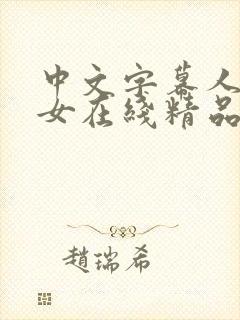 中文字幕人
女在线精品
趙瑞希